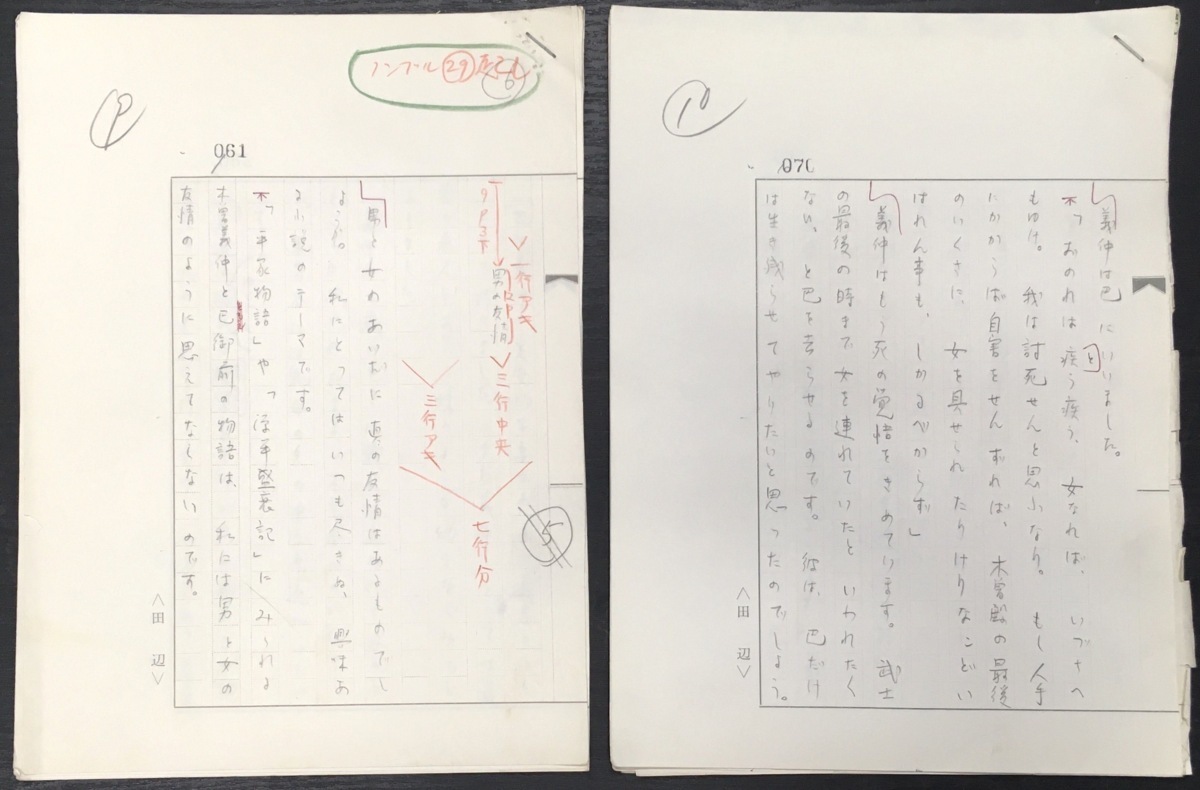 ノンブル 29
6
9
061
一行アキ
9P3下
男の友情
三行中央
三行アキ
七行分
5
男と女のあいだに 真の友情はあるものでし
ょうか。 私にとっては いつも尽きぬ、 興味あ
る小説のテーマです。
「平家物語」や「源平盛衰記」に みられる
木曽義仲と巴御前の物語は、 私には男と女の
友情のように 思えてならないのです。
〈田 辺〉
10
070
義仲は巴 にいいました。
と
「おのれは 疾う疾う、 女なれば、 いづちへ
もゆけ。 我は討死せんと思ふなり。 もし人手
にかからば自害をせん ずれば、 木曽殿の最後
のいくさに、 女を具せられ たりけりなどい
はれん事も、 しかるべからず」
義仲はもう死の覚悟をきめています。 武士
の最後の時まで 女を連れていたと いわれたく
ない、 と巴を去らせるのです。 彼は、 巴だけ
は生き残らせ てやりたいと思ったのでしょう。
〈田 辺〉